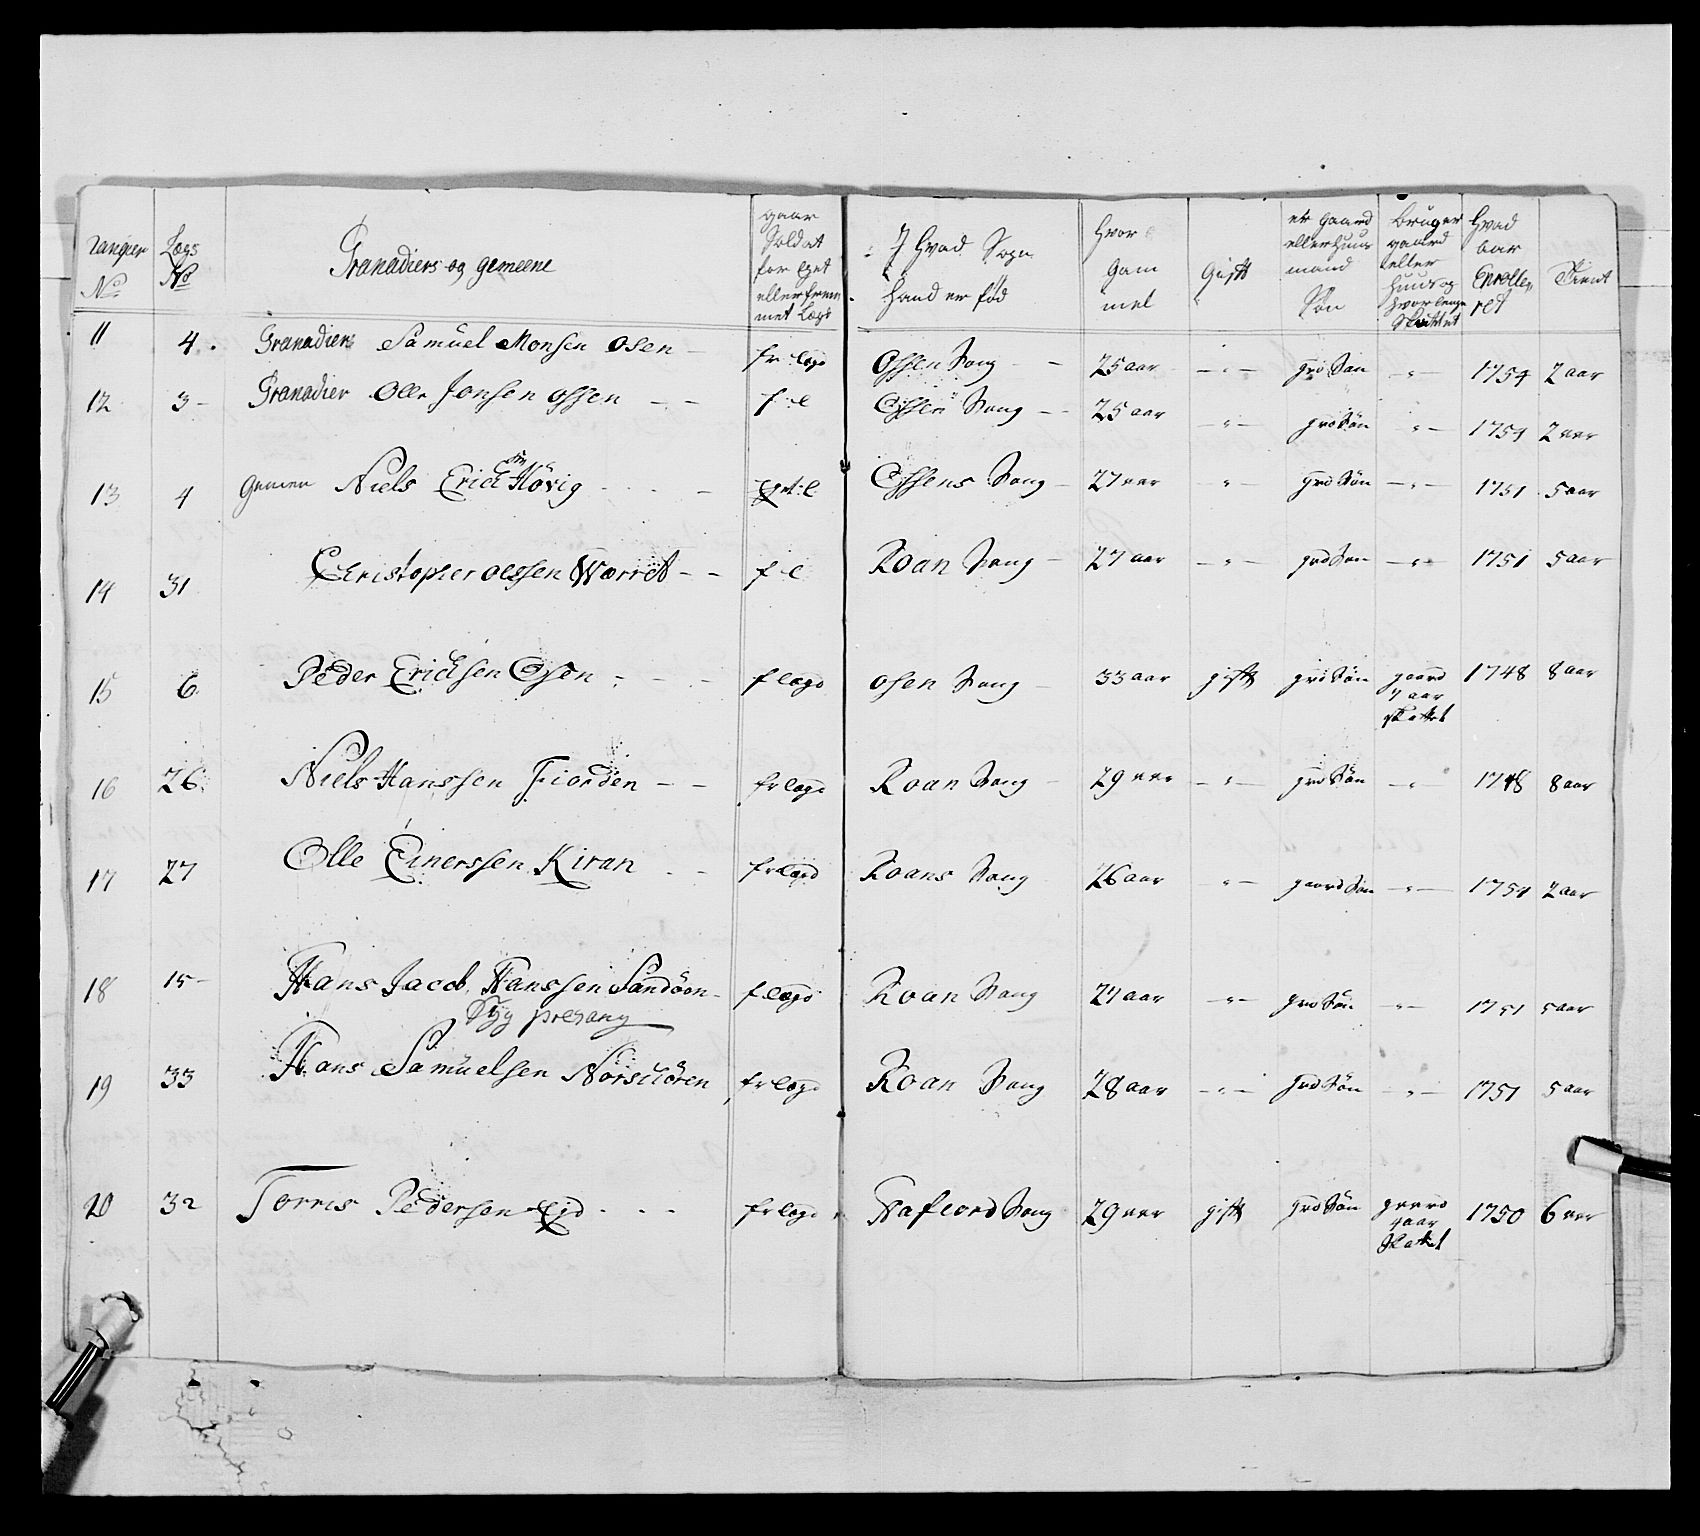 Rangier No | Lægs No | Granadiers og gemeene | gaar Soldat for Eget eller frem met Lægd | J Hvad Sogn hand er fød | Hvor gam mel | Gift | er gaard eller Huus mand Søn | Bruger gaard eller Huus og hvor lenge Skattet | Hvad aar Enrolle ret | Tient
11 | 4 | Granadier Samuel Monsen Osen | fr Lægd | Ossen Song | 25 aar | " | grd Søn | " | 1754 | 2 aar
12 | 3 | Granadier Olle Jonsen Ossen | f l | Ossen Song | 25 aar | " | grd Søn | " | 1754 | 2 aar
13 | 4 | Gemen Niels Erick sen Høvig | Eget l | Ossens Song | 27 aar | " | grd Søn | " | 1751 | 5 aar
14 | 31 | Christopher Olssen Worret | f l | Roan Song | 27 aar | " | grd Søn | " | 1751 | 5 aar
15 | 6 | Peder Ericksen Osen | f Lægd | Osen Song | 33 aar | gift | grd Søn | gaard 7 aar skattet | 1748 | 8 aar
16 | 26 | Niels Hanssen Fiorden | fr Lægd | Roan Song | 29 aar | " | grd Søn | " | 1748 | 8 aar
17 | 27 | Olle Einerssen Kiran | fr Lægd | Roans Song | 26 aar | " | gaard Søn | " | 1754 | 2 aar
18 | 15 | Hans Jacob Hanssen Sandøen | f Lægd | Roan Song | 27 aar | " | grd Søn | " | 1751 | 5 aar
19 | 33 | Hans Samuelsen Norskören | fr Lægd | Roan Song | 28 aar | " | grd Søn | " | 1751 | 5 aar
20 | 32 | Torres Pedersen Eid | fr Lægd | Nafiord Song | 29 aar | gift | grd Søn | gaard 4 aar Skattet | 1750 | 6 aar